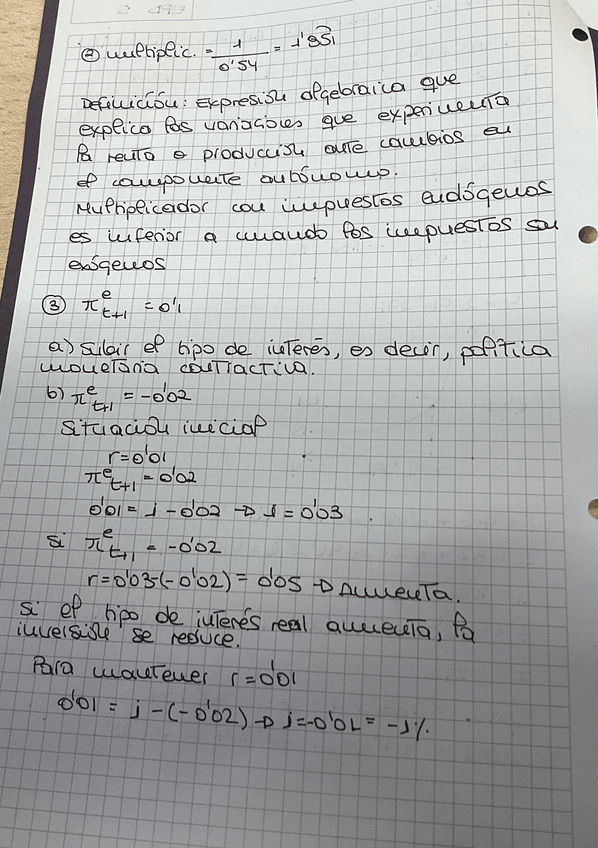 ② Multiplic. = 1/0'54 = 1'851
Definición: Expresión algebraica que
explica las variaciones que experimenta
la renta o producción ante cambios en
el componente autónomo.
Multiplicador con impuestos endógenos
es inferior a cuando los impuestos son
exógenos
③ π^e_{t+1} = 0'1
a) Subir el tipo de interés, es decir, política
monetaria contractiva.
b) π^e_{t+1} = -0'02
Situación inicial
r=0'01
π^e_{t+1} = 0'02
0'01 = i - 0'02 → i = 0'03
Si π^e_{t+1} = -0'02
r=0'03-(-0'02) = 0'05 → Aumenta.
Si el tipo de interés real aumenta, la
inversión se reduce.
Para mantener r=0'01
0'01 = i -(-0'02) → i=-0'01 = -1%.